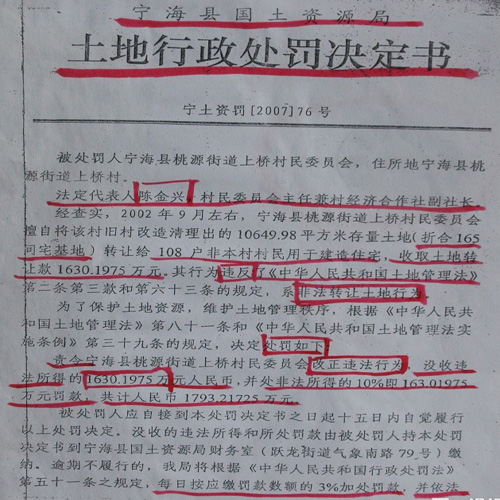 宁海县国土资源局
土地行政处罚决定书
宁土资罚[2007]76号
被处罚人宁海县桃源街道上桥村民委员会，住所地宁海县桃
源街道上桥村.
法定代表人陈金兴，村民委员会主任兼村经济合作社副社长
经查实，2002年9月左右，宁海县桃源街道上桥村民委员会
擅自将该村旧村改造清理出的10649.98平方米存量土地(折合165
间宅基地)转让给108户非本村村民用于建造住宅，收取土地转
让款1630.1975万元。其行为违反了《中华人民共和国土地管理法》
第二条第三款和第六十三条的规定，系非法转让土地行为
为了保护土地资源，维护土地管理秩序，根据《中华人民共
和国土地管理法》第八十一条和《中华人民共和国土地管理法实
施条例》第三十九条的规定，决定处罚如下
责令宁海县桃源街道上桥村民委员会改正违法行为，没收违
法所得的1630.1975万元人民币，并处非法所得的10%即163.01975
万元罚款，共计人民币1793.21725万元.
被处罚人应自接到本处罚决定书之日起十五日内自觉履行
以上处罚决定。没收的违法所得和所处罚款由被处罚人持本处罚
决定书到宁海县国土资源局财务室(跃龙街道气象南路79号)缴
纳。逾期不履行的，我局将根据《中华人民共和国行政处罚法》
第五十一条之规定，每日按应缴罚款数额的3%加处罚款，并依法